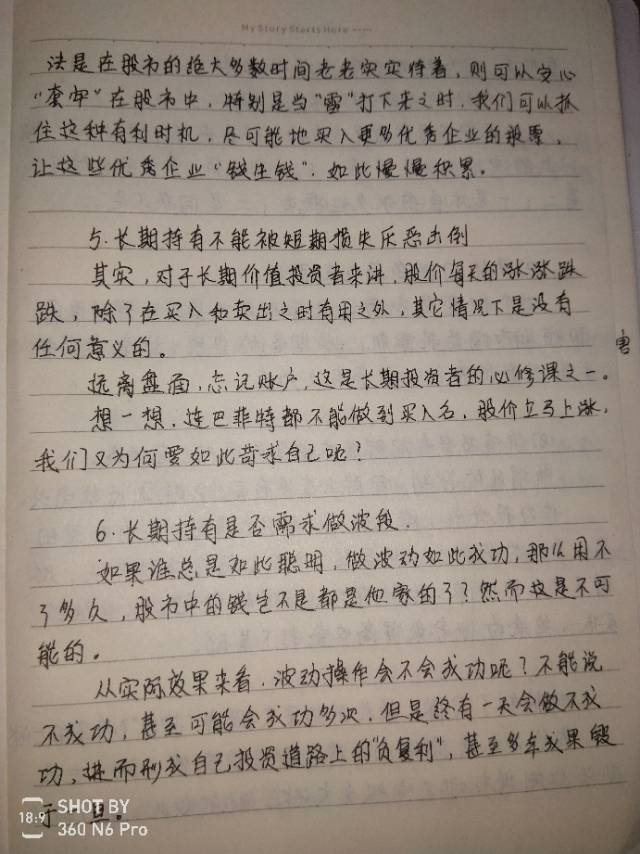 My Story Starts Here
法是在股市的绝大多数时间老老实实待着,则可以安心
“套牢”在股市中,特别是当“雷”打下来之时,我们可以抓
住这种有利时机,尽可能地买入更多优秀企业的股票,
让这些优秀企业“钱生钱”,如此慢慢积累。
5.长期持有不能被短期损失厌恶击倒
其实,对于长期价值投资者来讲,股价每天的涨涨跌
跌,除了在买入和卖出之时有用之外,其它情况下是没有
任何意义的。
远离盘面,忘记账户,这是长期投资者的必修课之一。
想一想,连巴菲特都不能做到买入后,股价立马上涨,
我们又为何要如此苛求自己呢?
6.长期持有是否需求做波段.
如果谁总是如此聪明,做波动如此成功,那么用不
了多久,股市中的钱岂不是都是他家的了?然而这是不可
能的。
从实际效果来看,波动操作会不会成功呢?不能说
不成功,甚至可能会成功多次,但是终有一天会做不成
功,进而形成自己投资道路上的“负复利”,甚至多年成果毁
于一旦。
18:9
SHOT BY
360 N6 Pro